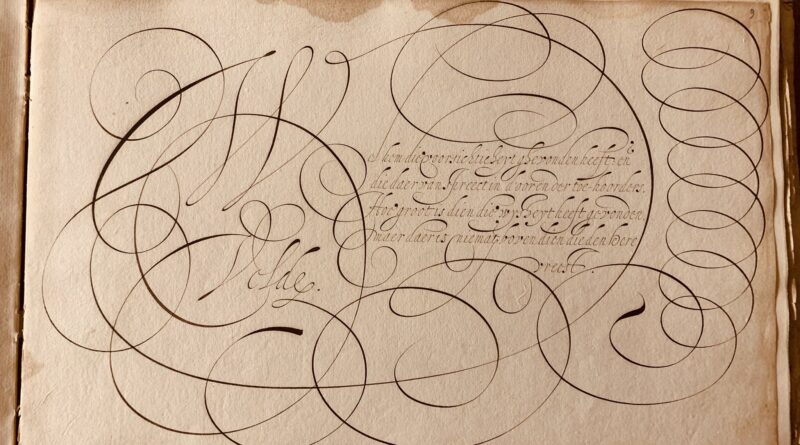 9
W
el hem die voorsichticheyt ghevonden heeft: en
die daer van spreect in d'ooren der toe-hoorders.
Hoe groot is dien die wysheyt heeft gevonden,
maer daer is niemāt boven dien die den Here
vreest.
Velde.